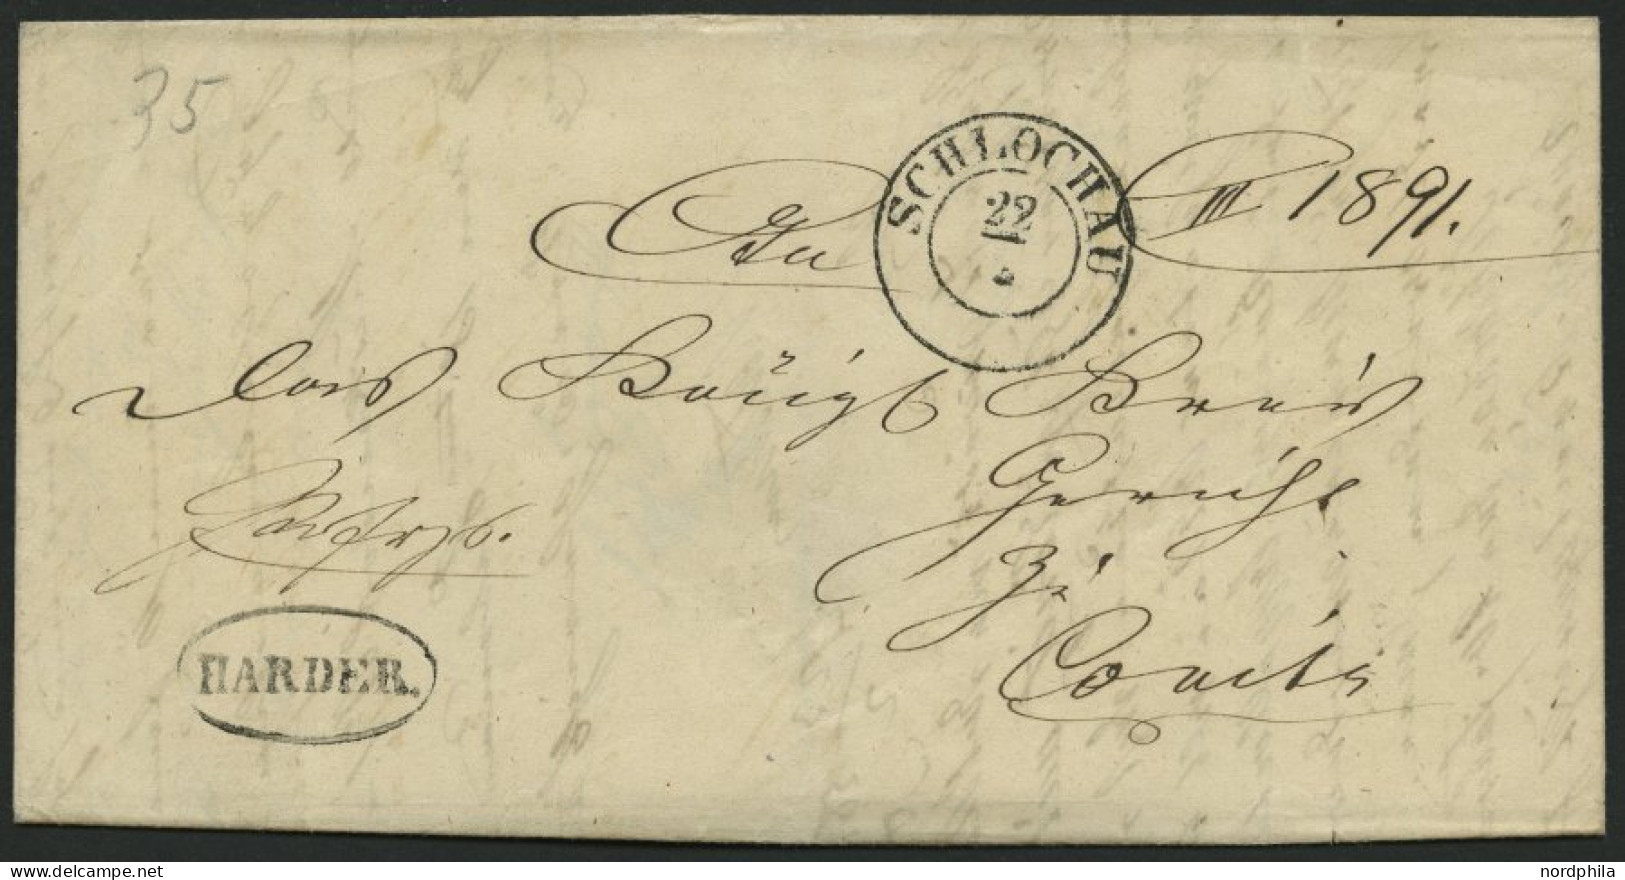 35
SCHLOCHAU
22
An
III 1891.
das Königl Kreis
Gericht
zu
Conitz
HARDER.
nordphila